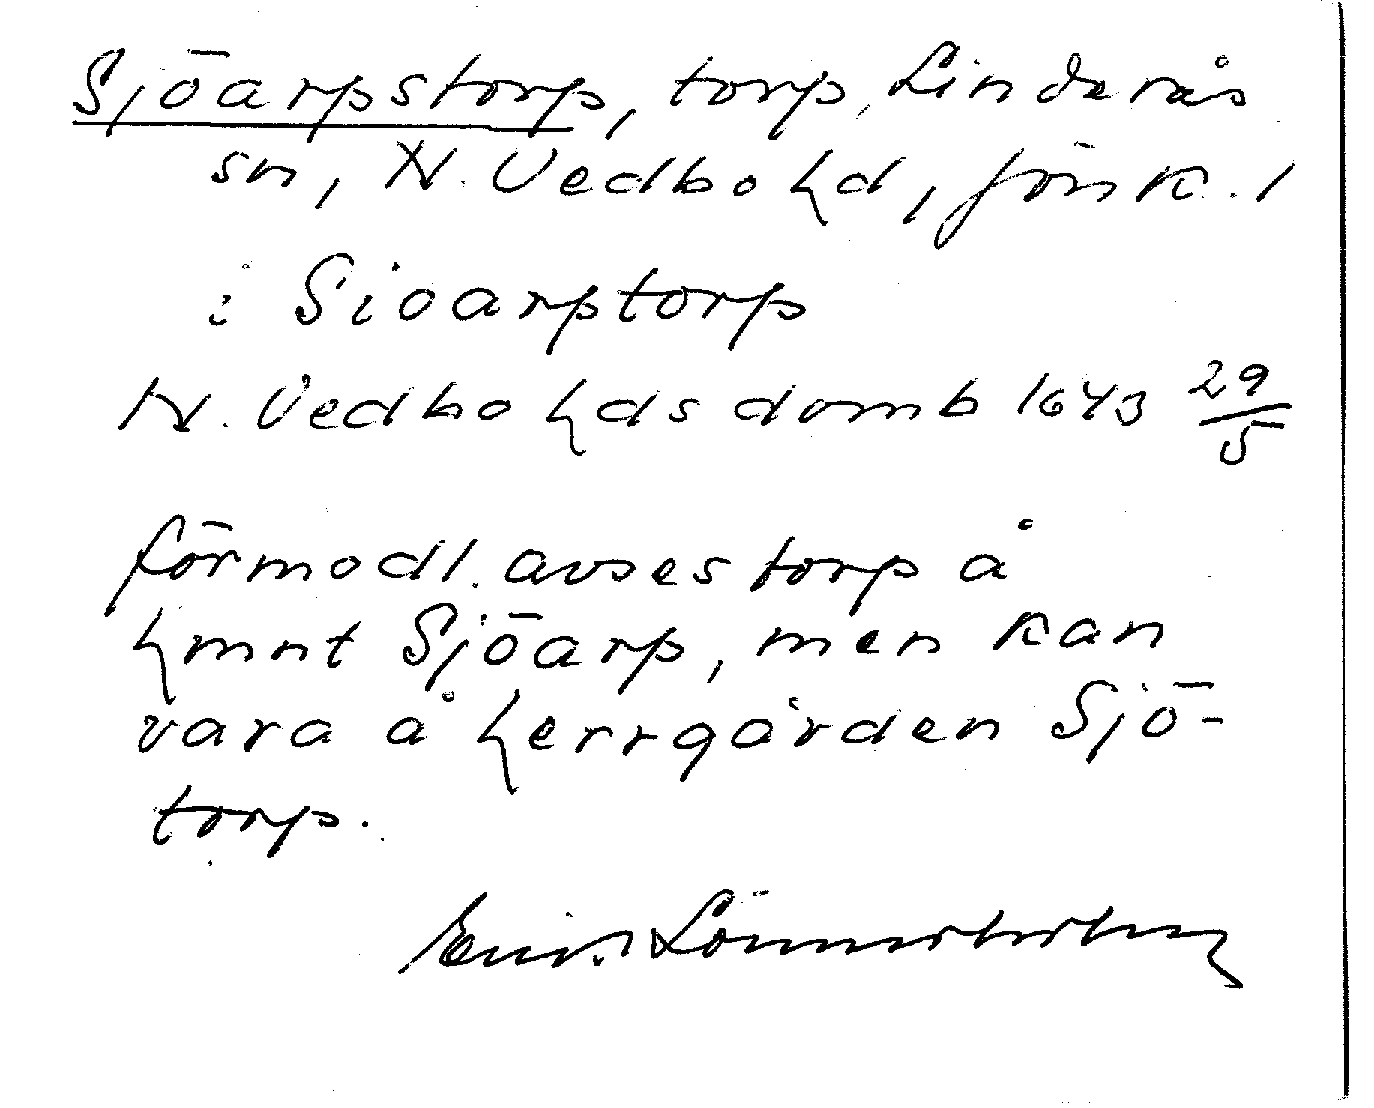 Sjöarpstorp, torp, Linderås
sn, N. Vedbo hd, Jönk. l
i Sioarptorp
N. Vedbo hds domb 1643 29/5
förmodl. avses torp å
hmnt Sjöarp, men kan
vara å herrgården Sjö-
torp.